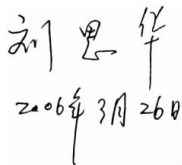 刘思华
2006年3月26日